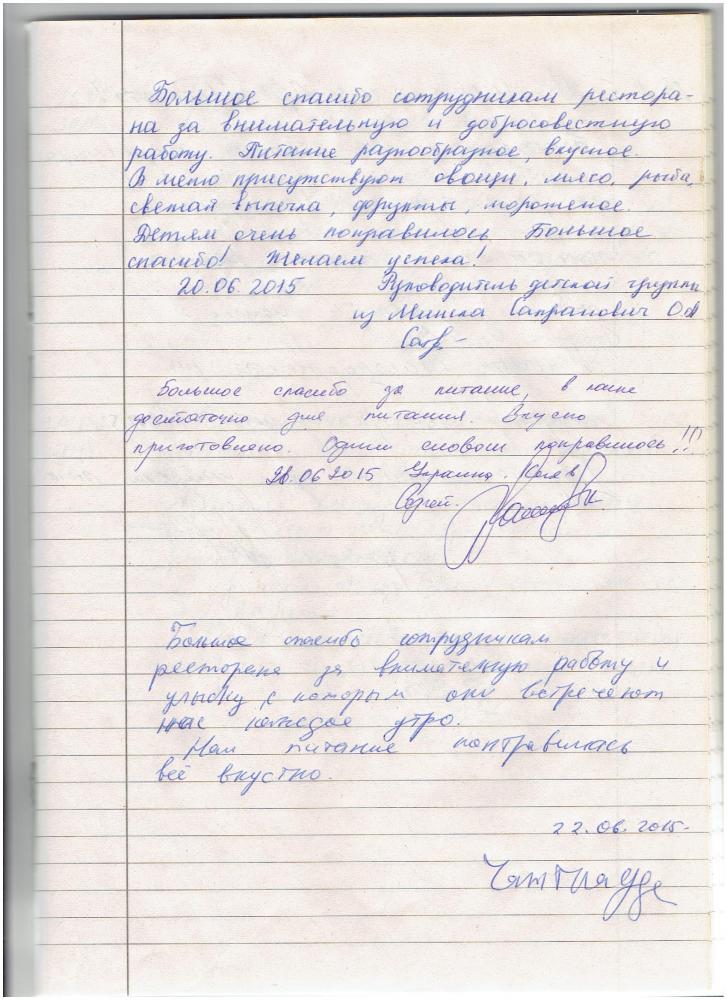 Большое спасибо сотрудникам рестора-
на за внимательную и добросовестную
работу. Питание разнообразное, вкусное.
В меню присутствуют овощи, мясо, рыба,
свежая выпечка, фрукты, мороженое.
Детям очень понравилось. Большое
спасибо! Желаем успеха!
20.06.2015 Руководитель детской группы
из Минска Сапранович
Большое спасибо за питание, в
достаточно для питания. Вкусно
приготовлено. Одним словом понравилось!!!
20.06.2015 Украина.
Сергей.
Большое спасибо сотрудникам
ресторана за внимательную работу и
улыбку с которым они встречают
нас каждое утро.
Нам питание понтравилась
всё вкустно.
22.06.2015.